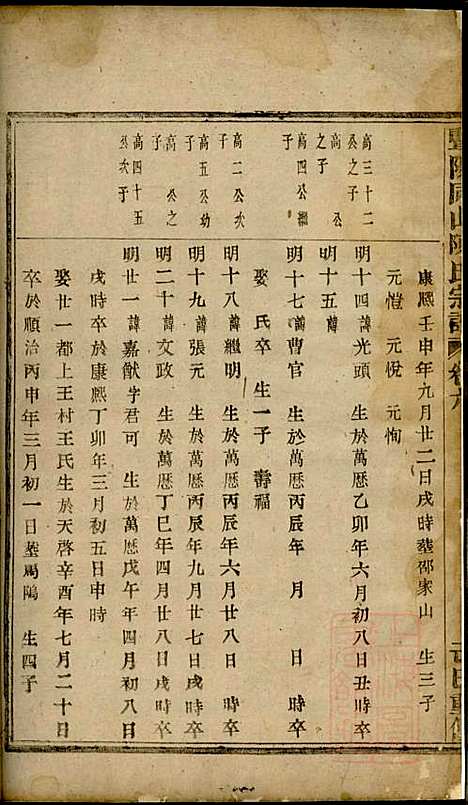 暨陽 山陳氏宗譜 卷六
康熙壬申年九月廿二日戌時塟邵家山 生三子
元愷 元悅 元恂
高三十二公之子
明十四諱光頭 生於萬曆乙卯年六月初八日丑時卒
高 公之子
明十五諱
高四公繼子
明十七諱曹官 生於萬曆丙辰年 月 日 時卒
娶 氏卒 生一子 壽福
高二公次子
明十八諱繼明 生於萬曆丙辰年六月廿八 時卒
高五公幼子
明十九諱張元 生於萬曆丙辰年九月廿七戌時卒
高 公之子
明二十諱文政 生於萬曆丁巳年四月廿八日戌時卒
高四十五公次子
明廿一諱嘉猷字君可 生於萬曆戊午年四月初八日
戌時卒於康熙丁卯年三月初五日申時
娶廿一都上王村王氏生於天啓辛酉年七月二十日
卒於順治丙申年三月初一日塟馬鴻 生四子